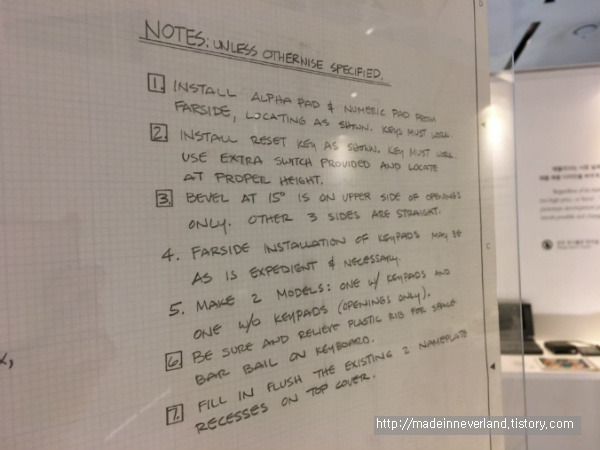 NOTES: UNLESS OTHERWISE SPECIFIED.
1. INSTALL ALPHA PAD & NUMERIC PAD FROM
FARSIDE, LOCATING AS SHOWN. KEYS MUST WORK.
2. INSTALL RESET KEY AS SHOWN. KEY MUST WORK.
USE EXTRA SWITCH PROVIDED AND LOCATE
AT PROPER HEIGHT.
3. BEVEL AT 15° IS ON UPPER SIDE OF OPENINGS
ONLY. OTHER 3 SIDES ARE STRAIGHT.
4. FARSIDE INSTALLATION OF KEYPADS MAY BE
AS IS EXPEDIENT & NECESSARY.
5. MAKE 2 MODELS: ONE W/ KEYPADS AND
ONE W/O KEYPADS (OPENINGS ONLY).
6. BE SURE AND RELIEVE PLASTIC RIB FOR SPACE
BAR BAIL ON KEYBOARD.
7. FILL IN FLUSH THE EXISTING 2 NAMEPLATE
RECESSES ON TOP COVER.
C
http://madeinneverland.tistory.com